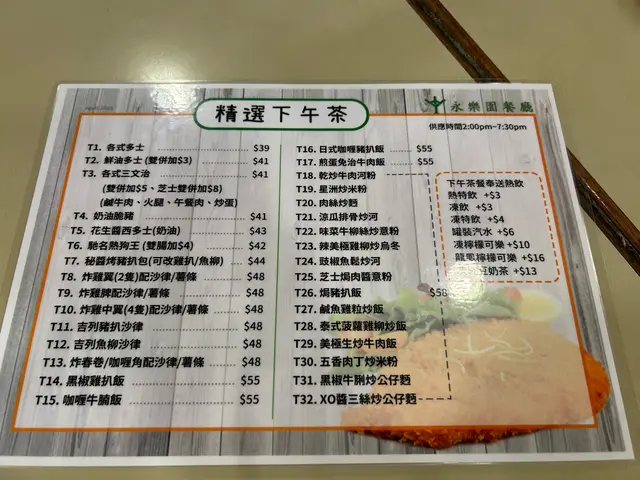 精選下午茶
永樂園餐廳
供應時間2:00pm~7:30pm
T1. 各式多士 $39
T2. 鮮油多士 (雙併加$3) $41
T3. 各式三文治 $41
(雙併加$5、芝士雙併加$8)
(鹹牛肉、火腿、午餐肉、炒蛋)
T4. 奶油脆豬 $41
T5. 花生醬西多士(奶油) $43
T6. 馳名熱狗王 (雙腸加$4) $42
T7. 秘醬烤豬扒包(可改雞扒/魚柳) $44
T8. 炸雞翼(2隻)配沙律/薯條 $48
T9. 炸雞脾配沙律/薯條 $48
T10. 炸雞中翼(4隻)配沙律/薯條 $48
T11. 吉列豬扒沙律 $48
T12. 吉列魚柳沙律 $48
T13. 炸春卷/咖喱角配沙律/薯條 $48
T14. 黑椒雞扒飯 $55
T15. 咖喱牛腩飯 $55
T16. 日式咖喱豬扒飯 $55
T17. 煎蛋免治牛肉飯 $55
T18. 乾炒牛肉河粉
T19. 星洲炒米粉
T20. 肉絲炒麵
T21. 涼瓜排骨炒河
T22. 味菜牛柳絲炒意粉
T23. 辣美極雞柳炒烏冬
T24. 豉椒魚鬆炒河
T25. 芝士焗肉醬意粉
T26. 焗豬扒飯 $58
T27. 鹹魚雞粒炒飯
T28. 泰式菠蘿雞柳炒飯
T29. 美極生炒牛肉飯
T30. 五香肉丁炒米粉
T31. 黑椒牛脷炒公仔麵
T32. XO醬三絲炒公仔麵
下午茶餐奉送熱飲
熱特飲 +$3
凍飲 +$3
凍特飲 +$4
罐裝汽水 +$6
凍檸檬可樂 +$10
龍鳳檸檬可樂 +$16
豆奶茶 +$13